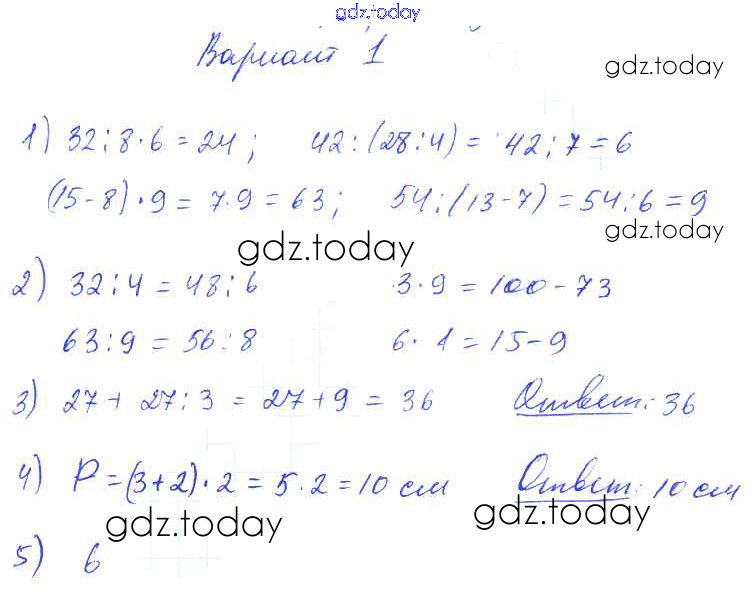 gdz.today
Вариант 1
gdz.today
1) 32:8·6=24; 42:(28:4)= 42:7=6
(15-8)·9= 7·9=63; 54:(13-7)=54:6=9
gdz.today
gdz.today
2) 32:4=48:6 3·9=100-73
63:9=56:8 6·1=15-9
3) 27+27:3=27+9=36 Ответ: 36
4) P=(3+2)·2=5·2=10 см Ответ: 10 см
gdz.today gdz.today
5) 6